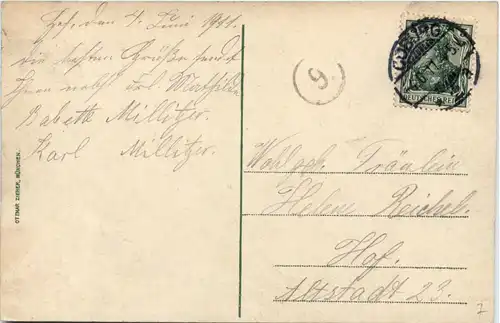 Hof, den 4. Juni 1911.
die besten Grüße sendet
Ihnen nebst Frl. Mathilde
Babette Millitzer.
Karl Millitzer.
OTTMAR ZIEHER, MÜNCHEN.
9
COBURG
DEUTSCHES REICH
Wohlgeb. Fräulein
Helene Reichel.
Hof.
Altstadt 23.